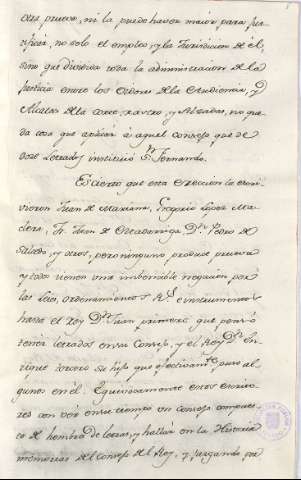 otra prueva, ni la puede haver maior para jus-
tificar, no solo el empleo, y la Jurisdicion de él,
sino que dividida toda la administracion de la
justicia entre los Oidores de la Audiencia, y
Alcaldes de la corte, rastro, y Alzadas, no que-
da cosa que aplicar à aquel consejo que de
doze Letrados instituió Sn. Fernando.
Es cierto que esta ereccion la escri-
vieron Juan de Mariana, Gregorio Lopez Ma-
dera, Fr. Juan de Dn. Pedro de
Salcedo, y otros, pero ninguno produce prueva
y todo tienen una imbencible negacion por
las Leies, ordenamientos Rs. e instrumentos
hasta el Rey Dn. Juan primero que pensó
tener Letrados en su Consejo, y el Rey Dn. En-
rique tercero su hijo que efectivamte. puso al-
gunos en él. Equivocamente estos escrito-
res con ver en su tiempo un consejo compues-
to de hombres de letras, y hallar en la Historia
memorias del consejo del Rey, y juzgando por